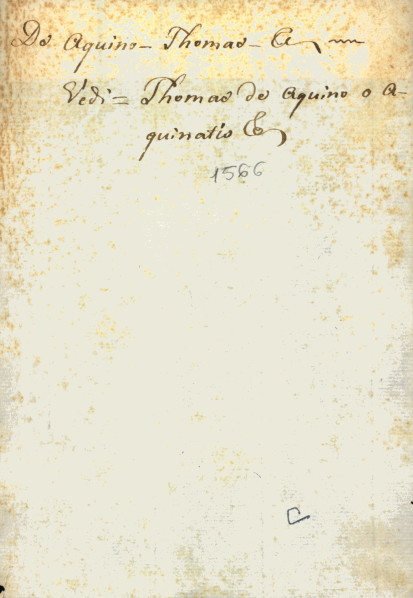 De Aquino - Thomas - &
Vedi = Thomas de Aquino o A-
quinatis &
1566